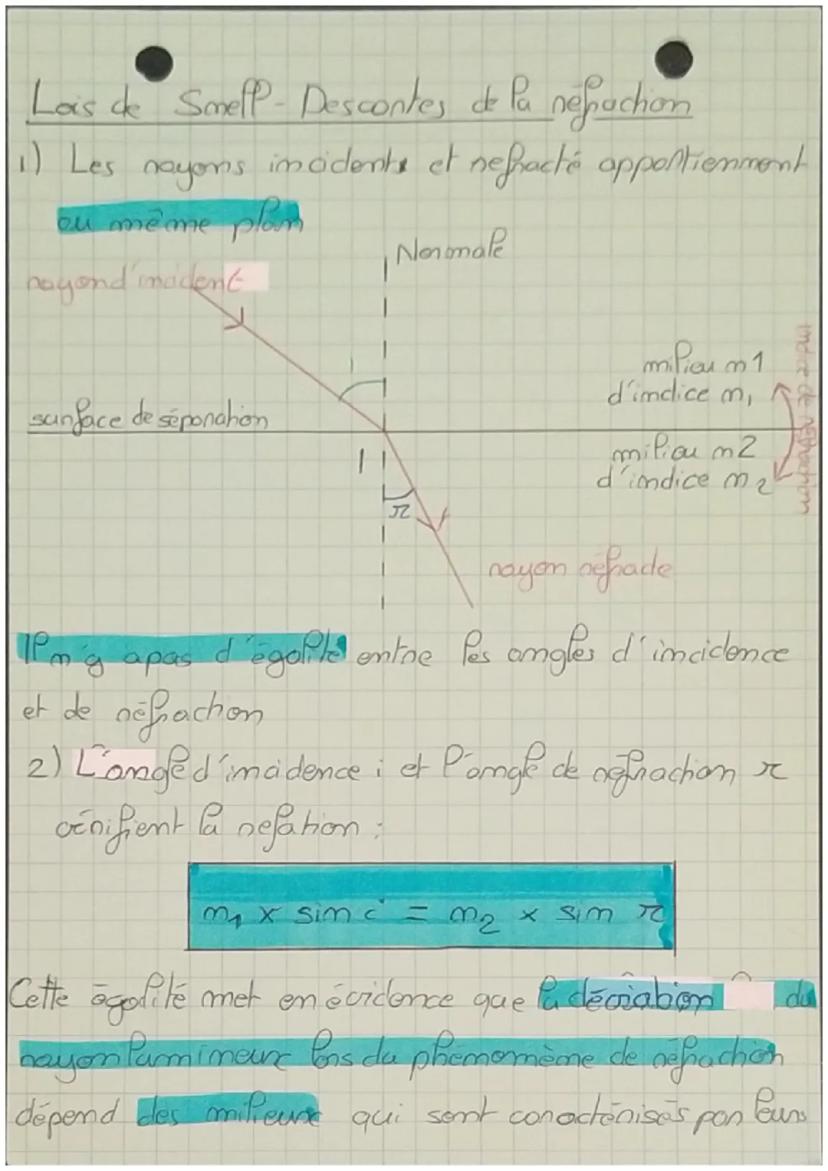 Lois de Snell-Descartes de la réfraction
1) Les rayons incidents et refracté appartiennent
au même plan
Normale
rayon d'incident
i
milieu m1
d'indice n₁
indice de réfraction
surface de séparation
I
milieu m2
d'indice n₂
r
rayon réfracte
Il n'y a pas d'égalité entre les angles d'incidence
et de réfraction
2) L'angle d'incidence i et l'angle de réfraction r
vérifient la relation :
n₁ x sin i = n₂ x sin r
Cette égalité met en évidence que la déviation du
rayon lumineux lors du phénomène de réfraction
dépend des milieux qui sont caractérisés par leurs